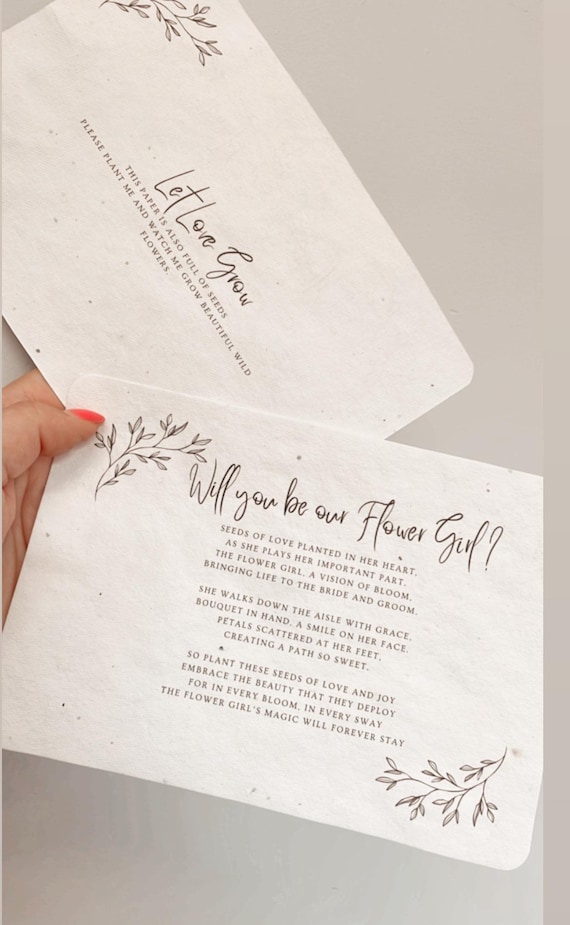 Let Love Grow
THIS PAPER IS ALSO FULL OF SEEDS
PLEASE PLANT ME AND WATCH ME GROW BEAUTIFUL WILD
FLOWERS
Will you be our Flower Girl?
SEEDS OF LOVE PLANTED IN HER HEART,
AS SHE PLAYS HER IMPORTANT PART.
THE FLOWER GIRL, A VISION OF BLOOM,
BRINGING LIFE TO THE BRIDE AND GROOM.
SHE WALKS DOWN THE AISLE WITH GRACE,
BOUQUET IN HAND, A SMILE ON HER FACE.
PETALS SCATTERED AT HER FEET,
CREATING A PATH SO SWEET.
SO PLANT THESE SEEDS OF LOVE AND JOY
EMBRACE THE BEAUTY THAT THEY DEPLOY
FOR IN EVERY BLOOM, IN EVERY SWAY
THE FLOWER GIRL'S MAGIC WILL FOREVER STAY